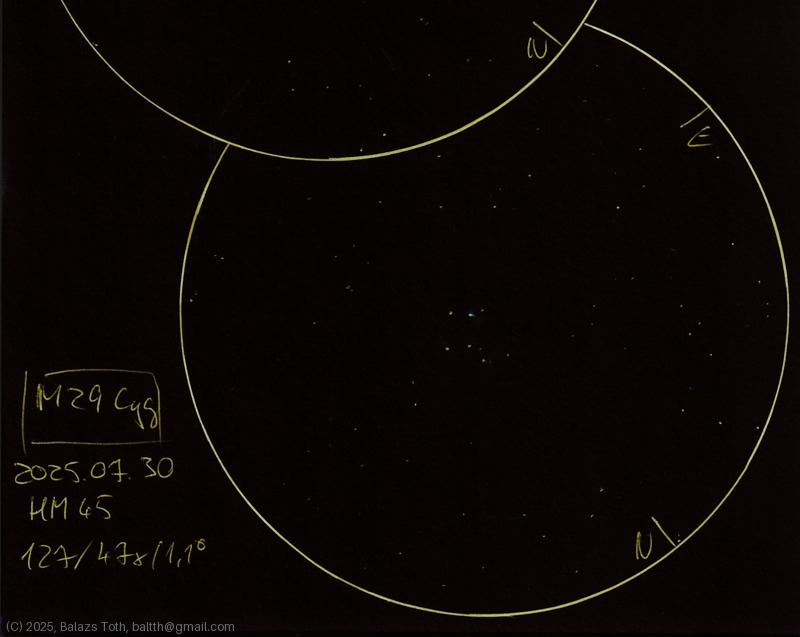 N
E
M29 Cyg
2025.07.30
HM 45
127/47x/1,1°
N
(C) 2025, Balazs Toth, baltth@gmail.com